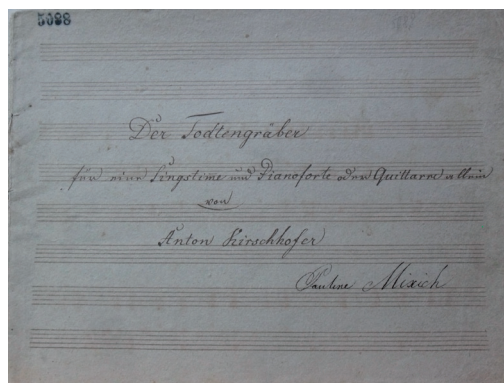 5698
Der Todtengräber
für eine Singstime und Pianoforte oder Quittarre allein
von
Anton Hirschhofer
Pauline Mixich